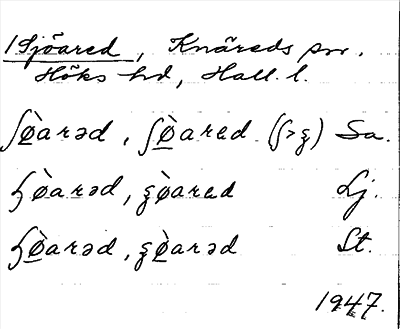 1 Sjöared, Knäreds sn.
Höks hd, Hall. l.
ʃø̀arəd, ʃø̀arɛd (ʃ>ʂ) Sa.
ʂø̀arəd, ʂø̀arɛd Lj.
ʂø̀arəd, ʂø̀arəd St.
1947.